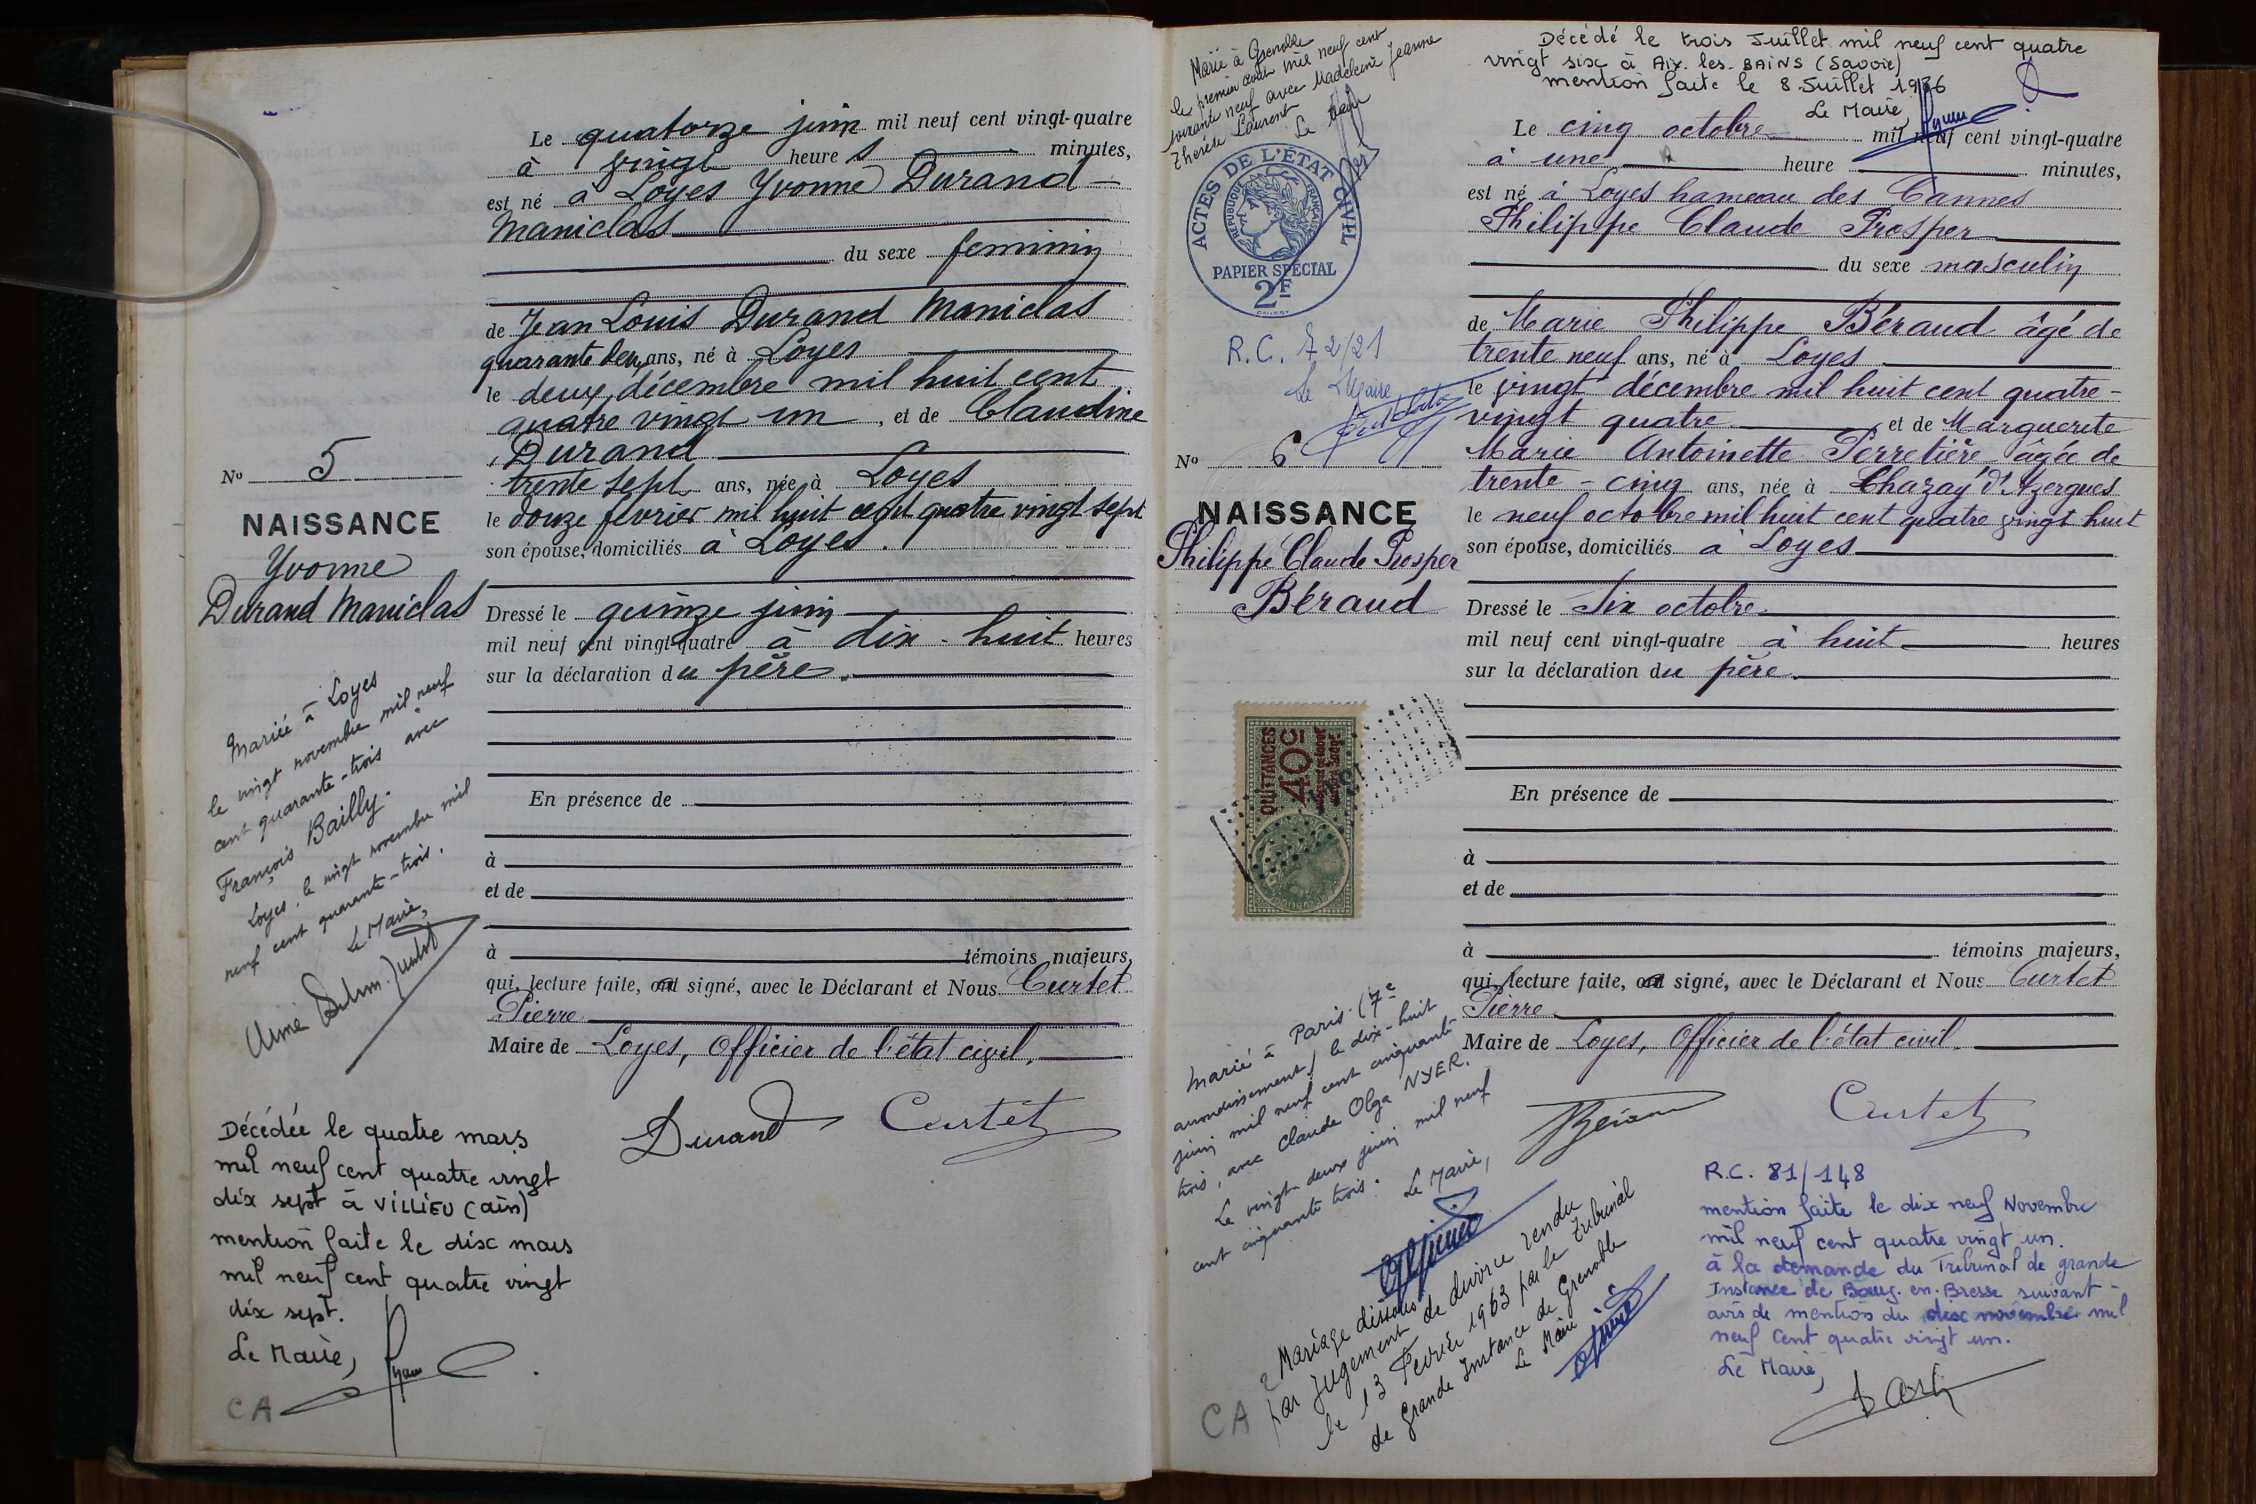 Le quatorze juin mil neuf cent vingt-quatre
à vingt heures minutes,
est né à Loyes Yvonne Durand-
Maniclas
du sexe feminin
de Jean Louis Durand Maniclas
quarante deux ans, né à Loyes
le deux décembre mil huit cent
quatre vingt un, et de Claudine
Durand
trente sept ans, née à Loyes
le douze février mil huit cent quatre vingt sept
son épouse, domiciliés à Loyes.
Dressé le quinze juin
mil neuf cent vingt-quatre à dix-huit heures
sur la déclaration du père.
En présence de
à
et de
à témoins majeurs,
qui, lecture faite, ont signé, avec le Déclarant et Nous Curtet
Pierre
Maire de Loyes, Officier de l'état civil.
Durand Curtet
No 5
NAISSANCE
Yvonne
Durand Maniclas
Mariée à Loyes
le vingt novembre mil neuf
cent quarante-trois avec
François Bailly.
Loyes, le vingt novembre mil
neuf cent quarante-trois.
Le Maire,
Décédée le quatre mars
mil neuf cent quatre vingt
dix sept à VILLIEU (ain)
mention faite le dix mars
mil neuf cent quatre vingt
dix sept.
Le Maire,
CA
Marié à Grenoble
le premier août mil neuf cent
soixante neuf avec Madeleine Jeanne
Thérèse Laurent
Le Maire
ACTES DE L'ÉTAT CIVIL
RÉPUBLIQUE FRANÇAISE
PAPIER SPÉCIAL
2F
R.C. 72/21
Le Maire
No 6
NAISSANCE
Philippe Claude Prosper
Béraud
QUITTANCES
40c
Décédé le trois Juillet mil neuf cent quatre
vingt six à Aix-les-BAINS (Savoie)
mention faite le 8 Juillet 1986
Le Maire,
Le cinq octobre mil neuf cent vingt-quatre
à une heure minutes,
est né à Loyes hameau des Cannes
Philippe Claude Prosper
du sexe masculin
de Marie Philippe Béraud âgé de
trente neuf ans, né à Loyes
le vingt décembre mil huit cent quatre-
vingt quatre et de Marguerite
Marie Antoinette Perretière âgée de
trente-cinq ans, née à Chazay d'Azergues
le neuf octobre mil huit cent quatre vingt huit
son épouse, domiciliés à Loyes
Dressé le Six octobre
mil neuf cent vingt-quatre à huit heures
sur la déclaration du père.
En présence de
à
et de
à témoins majeurs,
qui, lecture faite, ont signé, avec le Déclarant et Nous Curtet
Pierre
Maire de Loyes, Officier de l'état civil
Curtet
Marié à Paris (7e
arrondissement) le dix-huit
juin mil neuf cent cinquante
trois, avec Claude Olga NYER.
Le vingt-deux juin mil neuf
cent cinquante trois. Le Maire,
Mariage dissous
par Jugement de divorce rendu
le 13 Fevrier 1963 par le Tribunal
de Grande Instance de Grenoble
Le Maire
CA
R.C. 81/148
mention faite le dix neuf Novembre
mil neuf cent quatre vingt un.
à la demande du Tribunal de grande
Instance de Bourg. en. Bresse suivant
avis de mention du dix novembre mil
neuf cent quatre vingt un.
Le Maire,